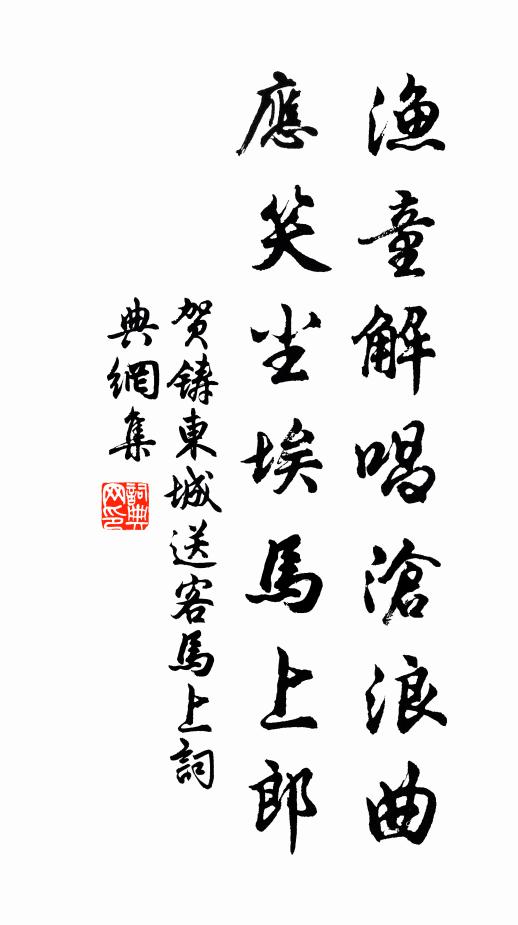 漁童解唱滄浪曲
應笑尘埃馬上郎
贺鑄東城送客馬上詞
典網集
詞典
网印